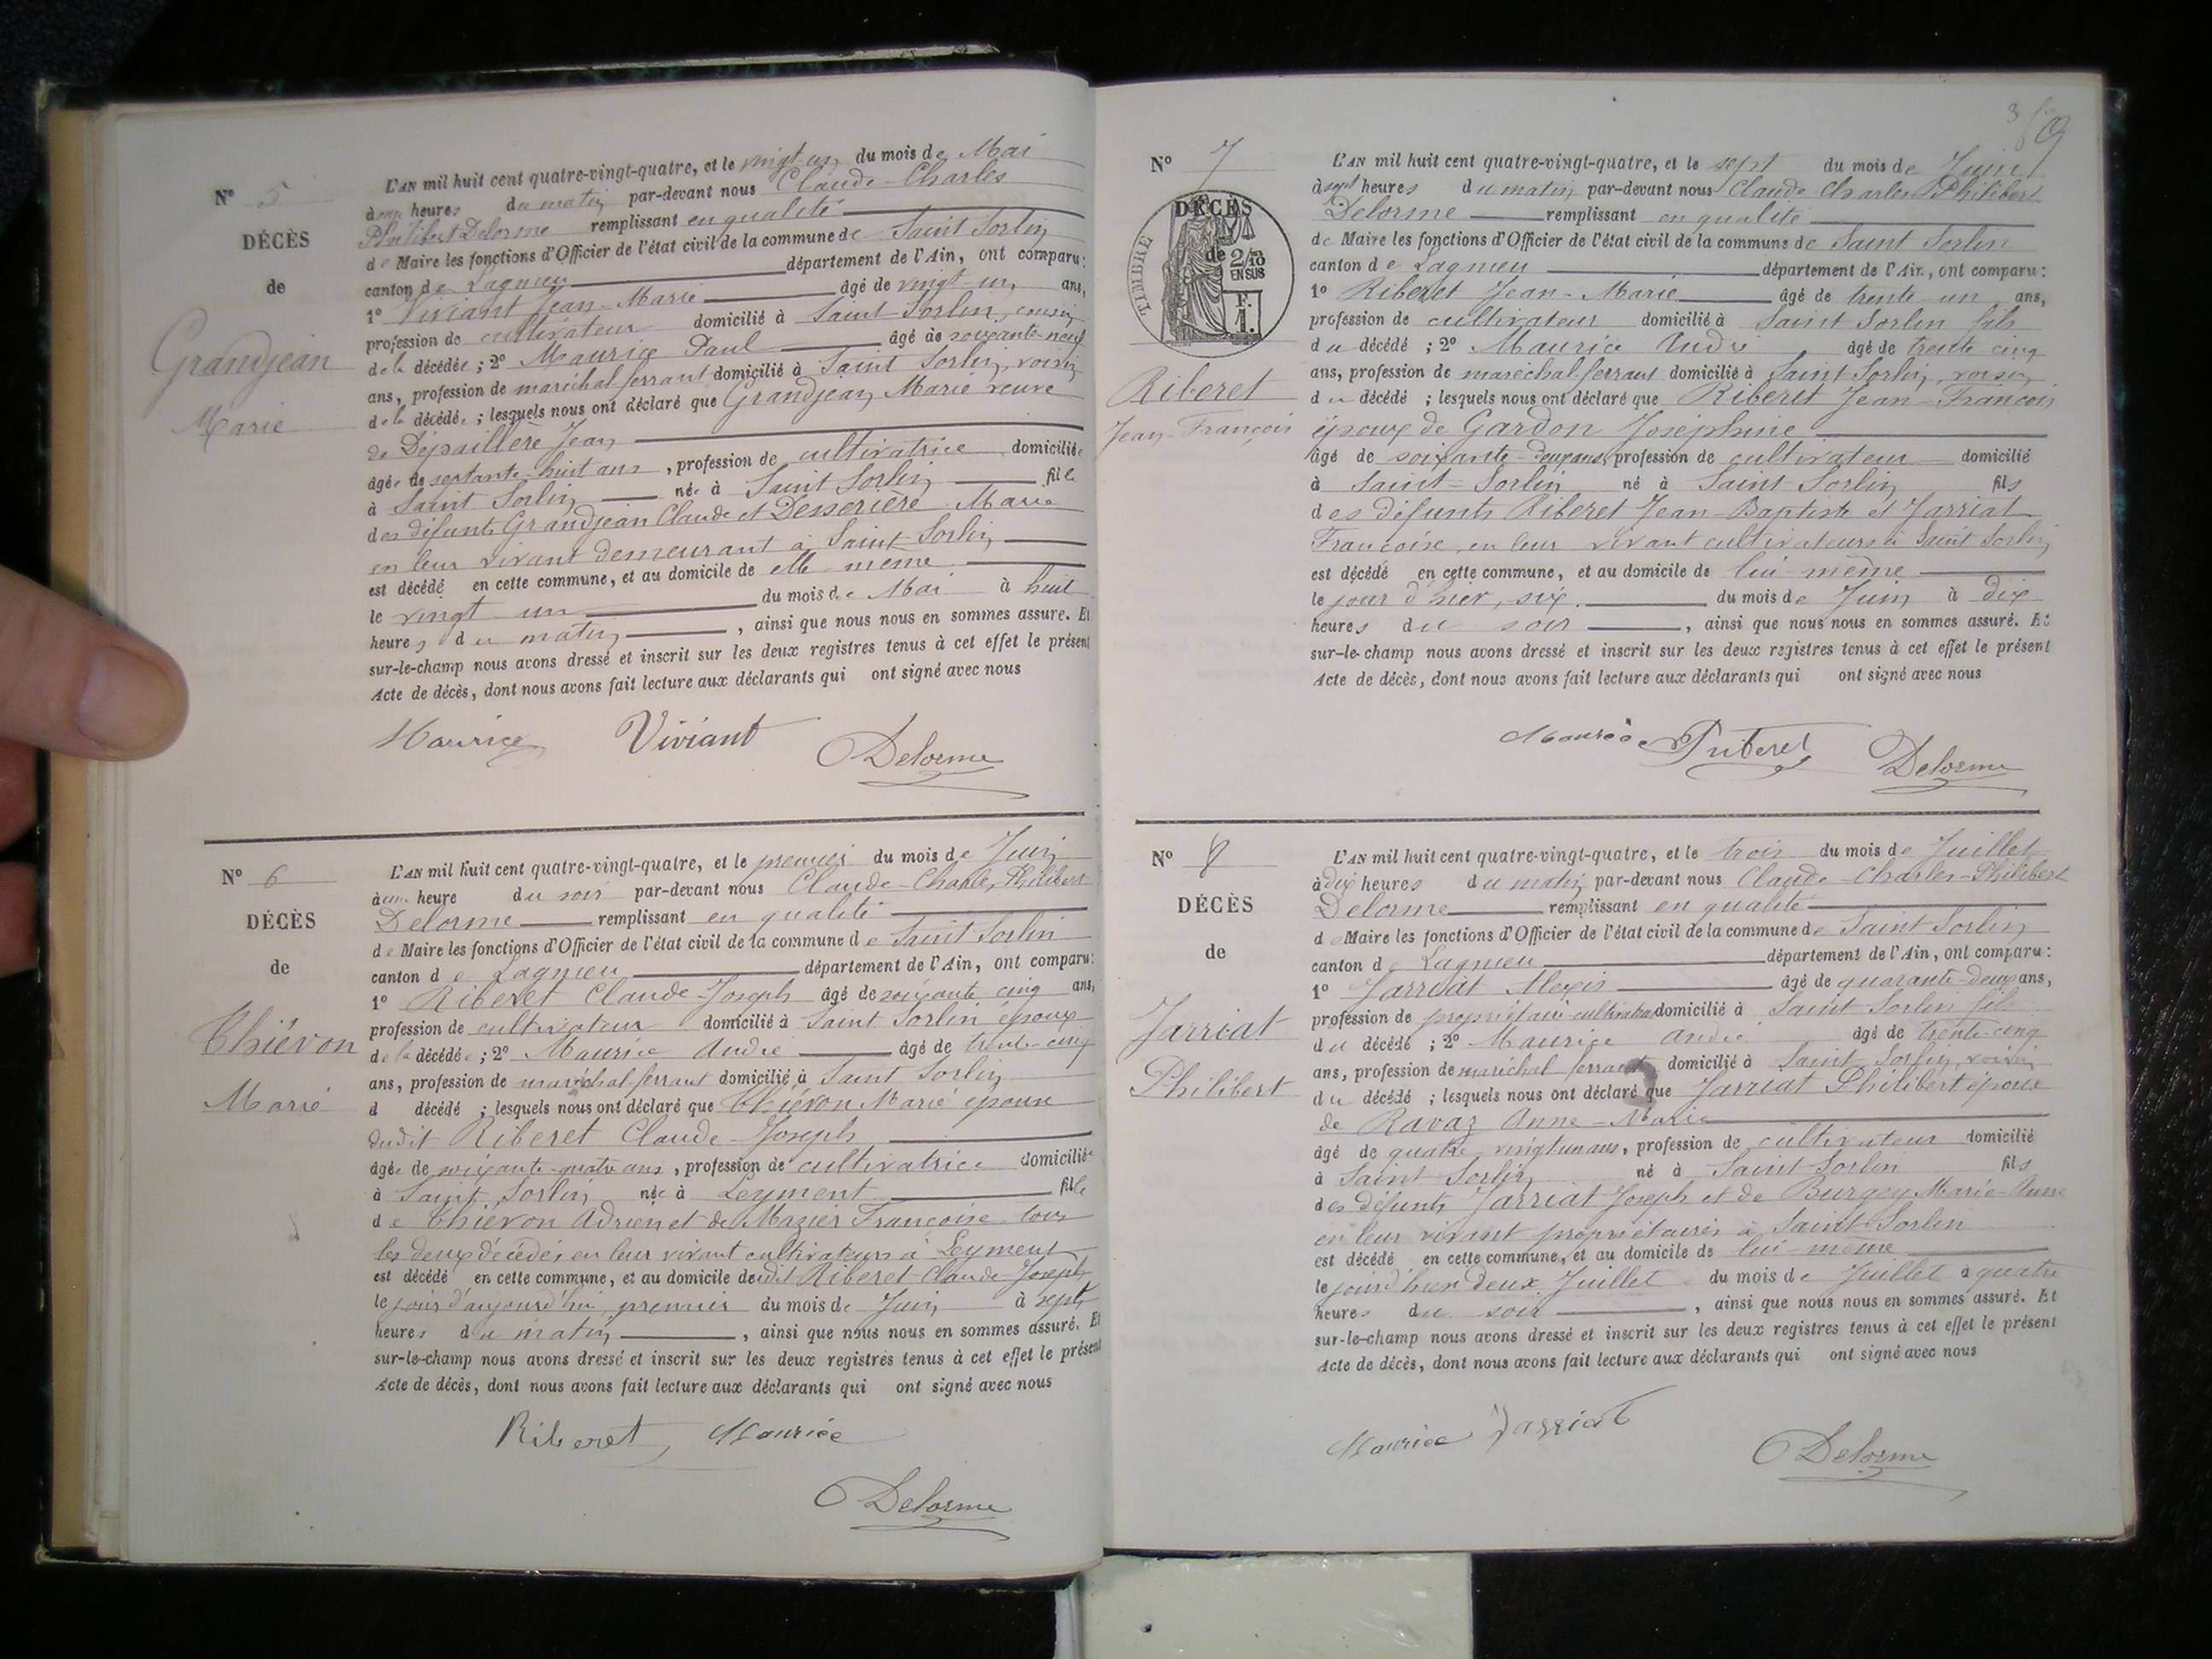 N° 5
DÉCÈS
de
Grandjean
Marie
L'AN mil huit cent quatre-vingt-quatre, et le vingt un du mois de Mai
à heures du matin par-devant nous Claude-Charles
Philibert Delorme remplissant en qualité
de Maire les fonctions d'Officier de l'état civil de la commune de Saint Sorlin
canton de Lagnieu département de l'Ain, ont comparu:
1° Viviant Jean-Marie âgé de vingt-un ans,
profession de cultivateur domicilié à Saint-Sorlin, cousin
de la décédée; 2° Maurice Paul âgé de soixante-neuf
ans, profession de maréchal ferrant domicilié à Saint Sorlin, voisin
de la décédée; lesquels nous ont déclaré que Grandjean Marie veuve
de Dépaillère Jean
âgée de septante-huit ans, profession de cultivatrice domiciliée
à Saint Sorlin née à Saint Sorlin fille
des défunts Grandjean Claude et Desserière Marie
en leur vivant demeurant à Saint-Sorlin
est décédé en cette commune, et au domicile de elle même
le vingt un du mois de Mai à huit
heures du matin, ainsi que nous nous en sommes assuré. Et
sur-le-champ nous avons dressé et inscrit sur les deux registres tenus à cet effet le présent
Acte de décès, dont nous avons fait lecture aux déclarants qui ont signé avec nous
Maurice Viviant Delorme
N° 6
DÉCÈS
de
Thiévon
Marie
L'AN mil huit cent quatre-vingt-quatre, et le premier du mois de Juin
à une heure du soir par-devant nous Claude-Charles Philibert
Delorme remplissant en qualité
de Maire les fonctions d'Officier de l'état civil de la commune de Saint Sorlin
canton de Lagnieu département de l'Ain, ont comparu:
1° Riberet Claude-Joseph âgé de soixante cinq ans,
profession de cultivateur domicilié à Saint Sorlin époux
de la décédée; 2° Maurice André âgé de trente-cinq
ans, profession de maréchal ferrant domicilié à Saint Sorlin
d décédé; lesquels nous ont déclaré que Thiévon Marie épouse
dudit Riberet Claude-Joseph
âgée de soixante-quatre ans, profession de cultivatrice domiciliée
à Saint Sorlin née à Leyment fille
de Thiévon Adrien et de Mazier Françoise tous
les deux décédés en leur vivant cultivateurs à Leyment
est décédé en cette commune, et au domicile dudit Riberet Claude Joseph
le jour d'aujourd'hui, premier du mois de Juin à sept
heures du matin, ainsi que nous nous en sommes assuré. Et
sur-le-champ nous avons dressé et inscrit sur les deux registres tenus à cet effet le présent
Acte de décès, dont nous avons fait lecture aux déclarants qui ont signé avec nous
Riberet Maurice
Delorme
N° 7
DÉCÈS
de
TIMBRE
2/10
EN SUS
F.
1.
Riberet
Jean-François
L'AN mil huit cent quatre-vingt-quatre, et le sept du mois de Juin
à sept heures du matin par-devant nous Claude Charles Philibert
Delorme remplissant en qualité
de Maire les fonctions d'Officier de l'état civil de la commune de Saint Sorlin
canton de Lagnieu département de l'Ain, ont comparu:
1° Riberet Jean-Marie âgé de trente un ans,
profession de cultivateur domicilié à Saint Sorlin fils
du décédé; 2° Maurice André âgé de trente cinq
ans, profession de maréchal-ferrant domicilié à Saint Sorlin, voisin
du décédé; lesquels nous ont déclaré que Riberet Jean-François
époux de Gardon Joséphine
âgé de soixante-deux ans, profession de cultivateur domicilié
à Saint-Sorlin né à Saint-Sorlin fils
des défunts Riberet Jean-Baptiste et Jarriat
Françoise, en leur vivant cultivateurs à Saint Sorlin
est décédé en cette commune, et au domicile de lui-même
le jour d'hier, six du mois de Juin à dix
heures du soir, ainsi que nous nous en sommes assuré. Et
sur-le-champ nous avons dressé et inscrit sur les deux registres tenus à cet effet le présent
Acte de décès, dont nous avons fait lecture aux déclarants qui ont signé avec nous
Maurice Riberet Delorme
N° 8
DÉCÈS
de
Jarriat
Philibert
L'AN mil huit cent quatre-vingt-quatre, et le trois du mois de Juillet
à dix heures du matin par-devant nous Claude-Charles-Philibert
Delorme remplissant en qualité
de Maire les fonctions d'Officier de l'état civil de la commune de Saint Sorlin
canton de Lagnieu département de l'Ain, ont comparu:
1° Jarriat Alexis âgé de quarante-deux ans,
profession de propriétaire-cultivateur domicilié à Saint Sorlin fils
du décédé; 2° Maurice André âgé de trente-cinq
ans, profession de maréchal ferrant domicilié à Saint Sorlin, voisin
du décédé; lesquels nous ont déclaré que Jarriat Philibert époux
de Ravaz Anne-Marie
âgé de quatre vingt un ans, profession de cultivateur domicilié
à Saint Sorlin né à Saint-Sorlin fils
des défunts Jarriat Joseph et de Burgey Marie-Anne
en leur vivant propriétaires à Saint-Sorlin
est décédé en cette commune, et au domicile de lui-même
le jour d'hier deux Juillet du mois de Juillet à quatre
heures du soir, ainsi que nous nous en sommes assuré. Et
sur-le-champ nous avons dressé et inscrit sur les deux registres tenus à cet effet le présent
Acte de décès, dont nous avons fait lecture aux déclarants qui ont signé avec nous
Maurice Jarriat
Delorme